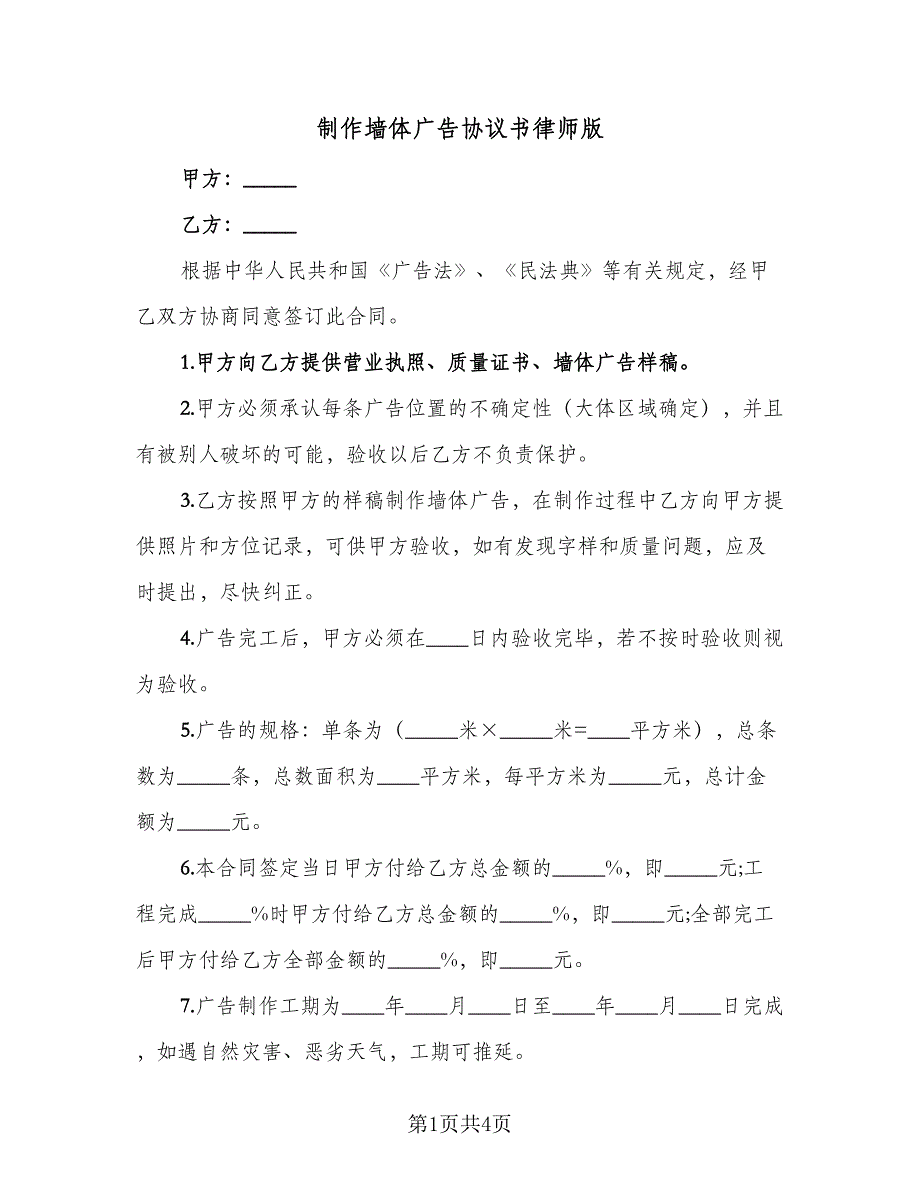 制作墙体广告协议书律师版
甲方：_____
乙方：_____
根据中华人民共和国《广告法》、《民法典》等有关规定，经甲
乙双方协商同意签订此合同。
1.甲方向乙方提供营业执照、质量证书、墙体广告样稿。
2.甲方必须承认每条广告位置的不确定性（大体区域确定），并且
有被别人破坏的可能，验收以后乙方不负责保护。
3.乙方按照甲方的样稿制作墙体广告，在制作过程中乙方向甲方提
供照片和方位记录，可供甲方验收，如有发现字样和质量问题，应及
时提出，尽快纠正。
4.广告完工后，甲方必须在____日内验收完毕，若不按时验收则视
为验收。
5.广告的规格：单条为（_____米×_____米=____平方米），总条
数为_____条，总数面积为____平方米，每平方米为_____元，总计金
额为_____元。
6.本合同签定当日甲方付给乙方总金额的_____%，即_____元;工
程完成_____%时甲方付给乙方总金额的_____%，即_____元;全部完工
后甲方付给乙方全部金额的_____%，即_____元。
7.广告制作工期为____年____月____日至____年____月____日完成
，如遇自然灾害、恶劣天气，工期可推延。
第1页共4页